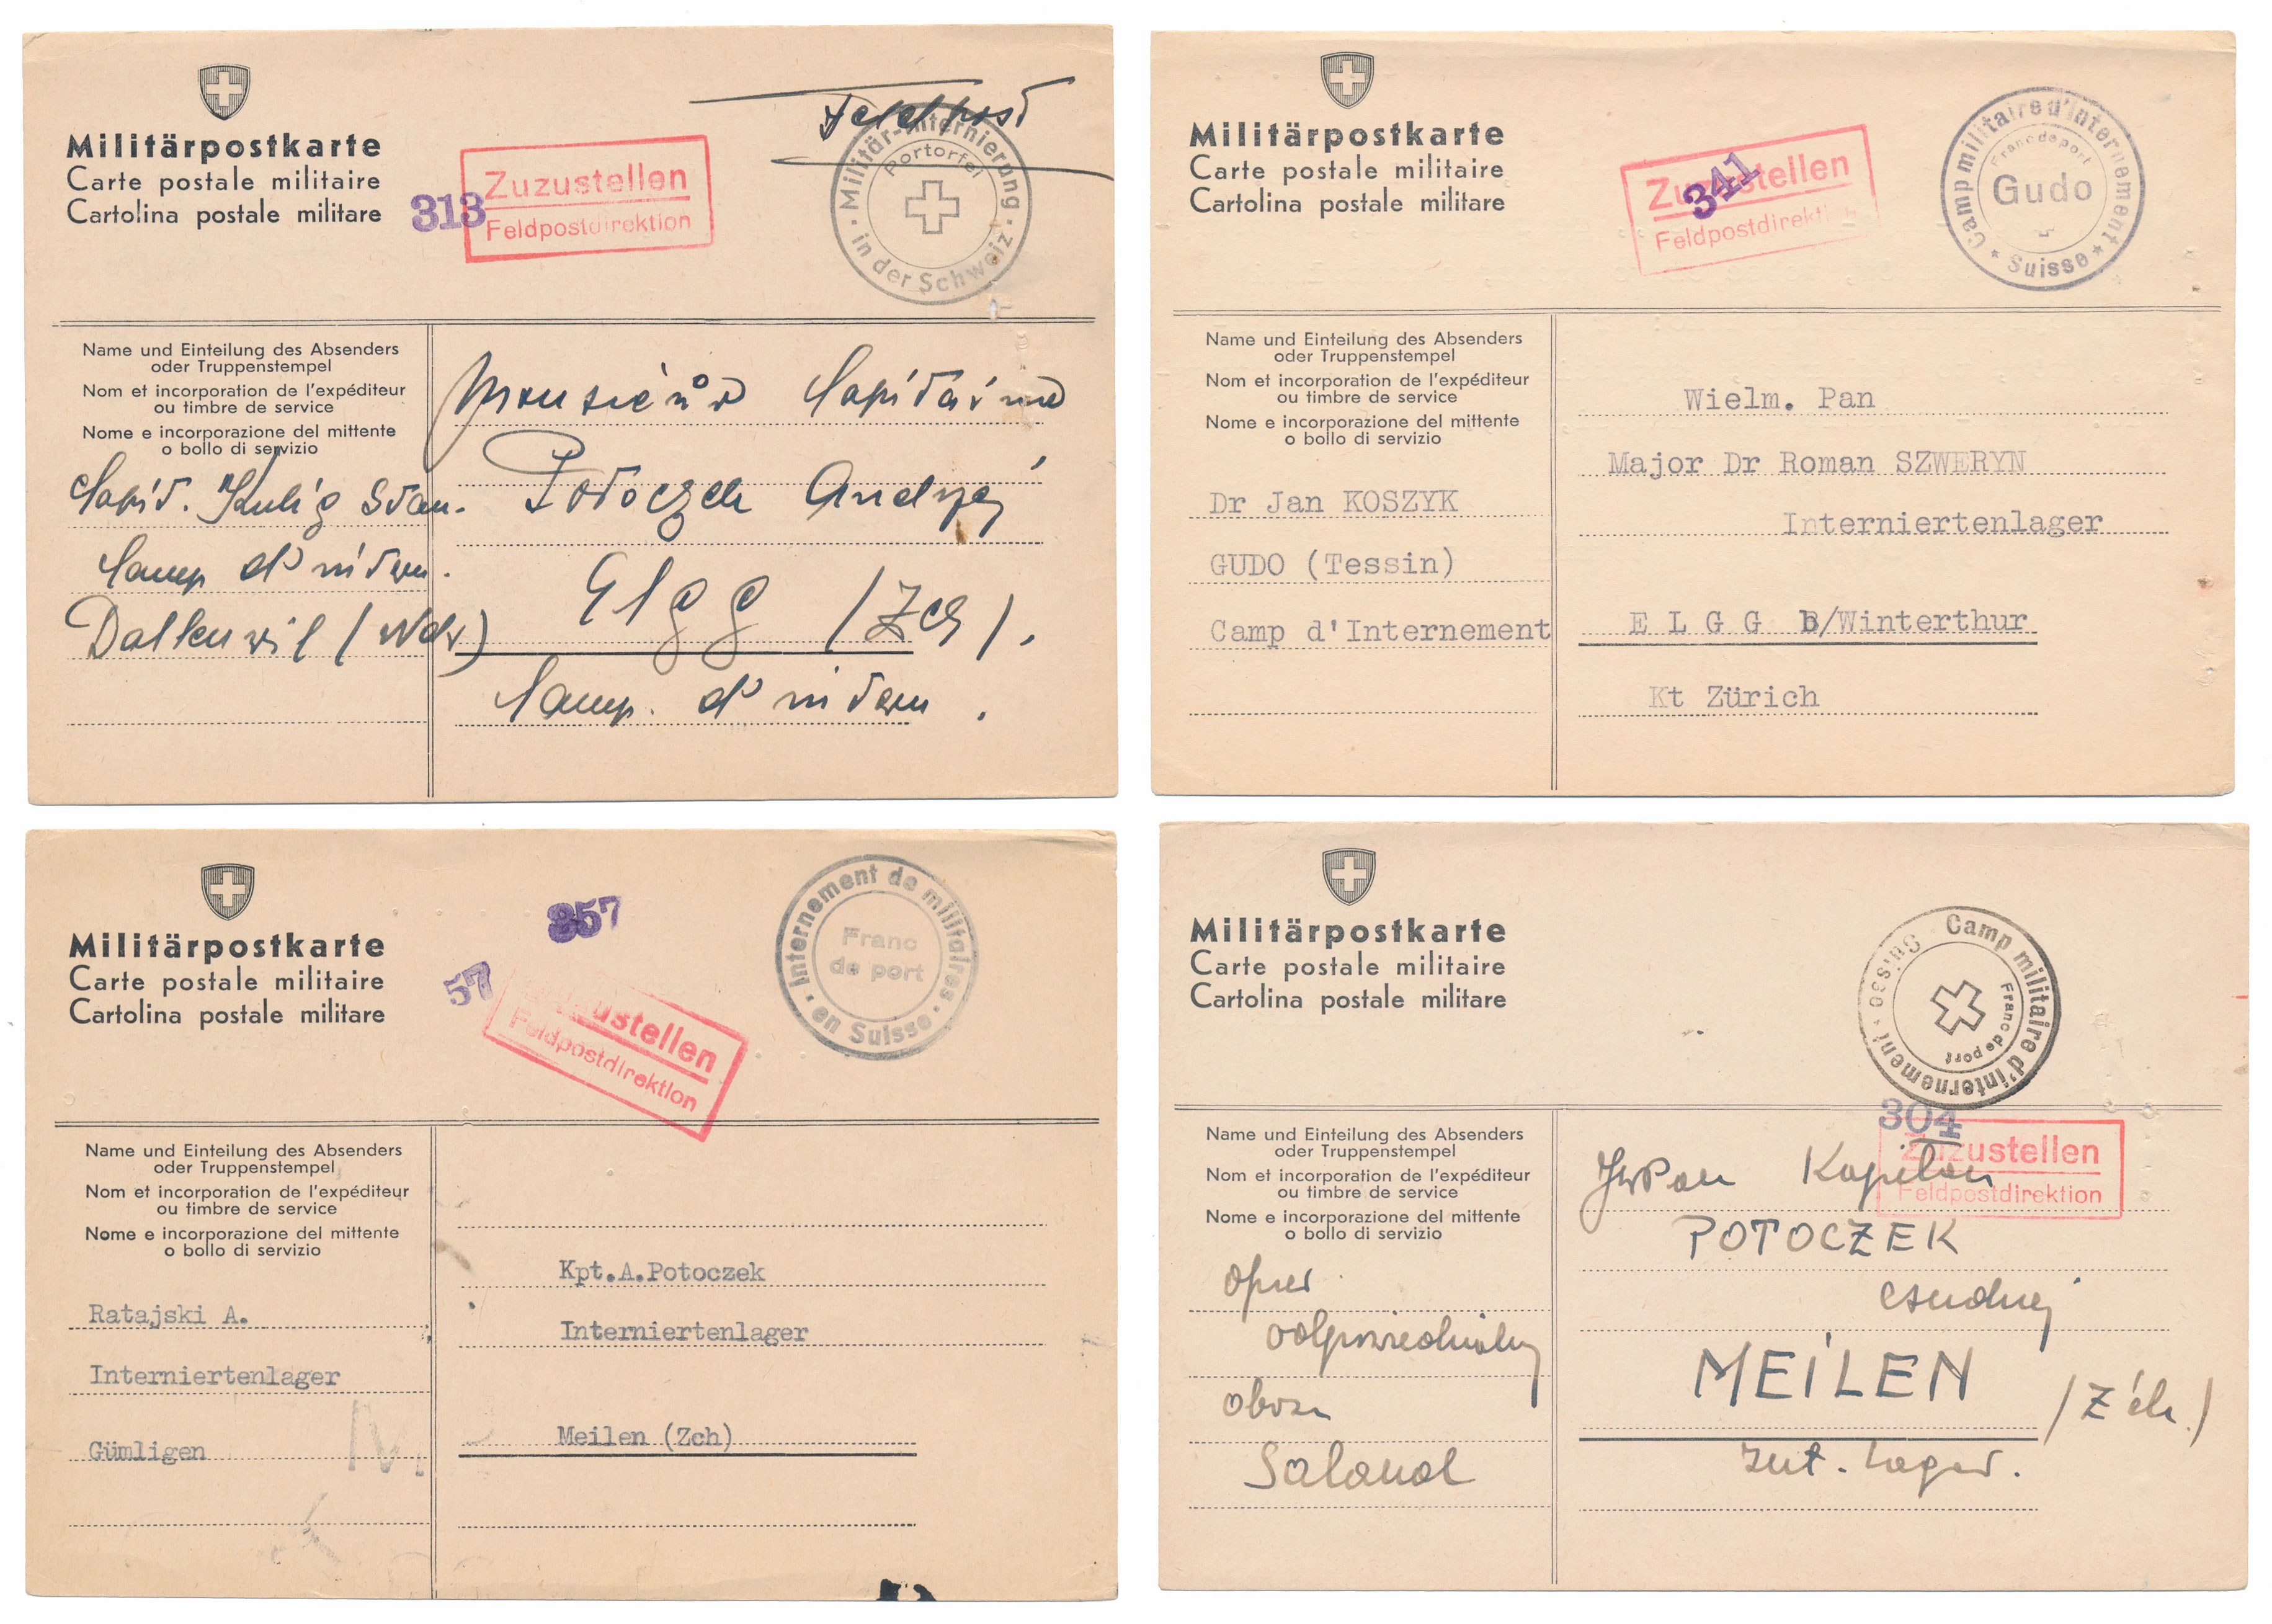 Militärpostkarte
Carte postale militaire
Cartolina postale militare
313
Zuzustellen
Feldpostdirektion
Feldpost
Militär-Internierung
Portofrei
in der Schweiz
Name und Einteilung des Absenders
oder Truppenstempel
Nom et incorporation de l'expéditeur
ou timbre de service
Nome e incorporazione del mittente
o bollo di servizio
Capit. Kulig Stan.
Camp d'intern.
Dallenwil / Ndw)
Monsieur Capitaine
Potoczek Andrzej
Elgg /Zch/.
Camp. d'intern.
Militärpostkarte
Carte postale militaire
Cartolina postale militare
341
Zuzustellen
Feldpostdirektion
Camp militaire d'internement
Franc de port
Gudo
* Suisse *
Name und Einteilung des Absenders
oder Truppenstempel
Nom et incorporation de l'expéditeur
ou timbre de service
Nome e incorporazione del mittente
o bollo di servizio
Dr Jan KOSZYK
GUDO (Tessin)
Camp d'Internement
Wielm. Pan
Major Dr Roman SZWERYN
Interniertenlager
E L G G b/Winterthur
Kt Zürich
Militärpostkarte
Carte postale militaire
Cartolina postale militare
357
57
Zuzustellen
Feldpostdirektion
Internement de militaires
Franc
de port
en Suisse
Name und Einteilung des Absenders
oder Truppenstempel
Nom et incorporation de l'expéditeur
ou timbre de service
Nome e incorporazione del mittente
o bollo di servizio
Ratajski A.
Interniertenlager
Gümligen
Kpt.A.Potoczek
Interniertenlager
Meilen (Zch)
Militärpostkarte
Carte postale militaire
Cartolina postale militare
Camp militaire d'internement
Franc de port
Suisse
304
Zuzustellen
Feldpostdirektion
Name und Einteilung des Absenders
oder Truppenstempel
Nom et incorporation de l'expéditeur
ou timbre de service
Nome e incorporazione del mittente
o bollo di servizio
obóz
Saland
JWPan Kapitan
POTOCZEK
MEILEN /Zch./
Int. Lager.